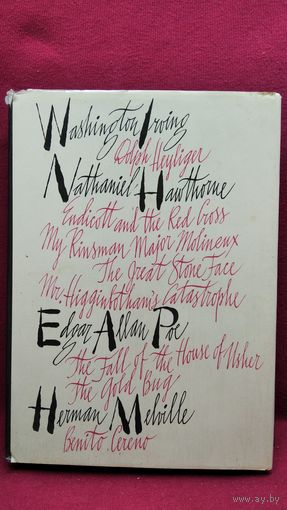 Washington Irving
Dolph Heyliger
Nathaniel Hawthorne
Endicott and the Red Cross
My Kinsman Major Molineux
The Great Stone Face
Mr. Higginbotham's Catastrophe
Edgar Allan Poe
The Fall of the House of Usher
The Gold Bug
Herman Melville
Benito Cereno
www.ay.by